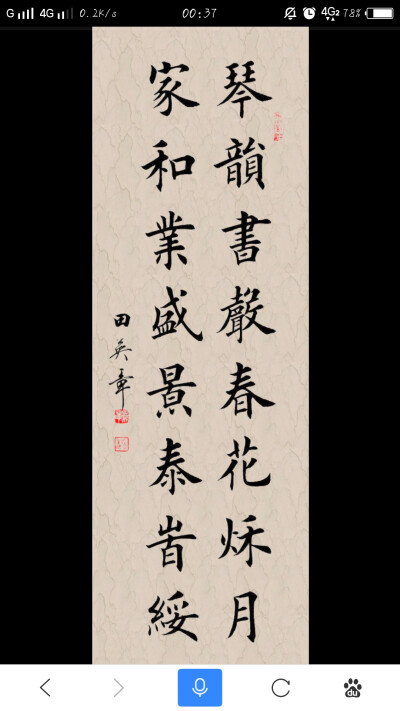 G 4G 0.2K/s 00:37 4G2 78%
琴韻書聲春花秌月
家和業盛景泰旹綏
田英章
du